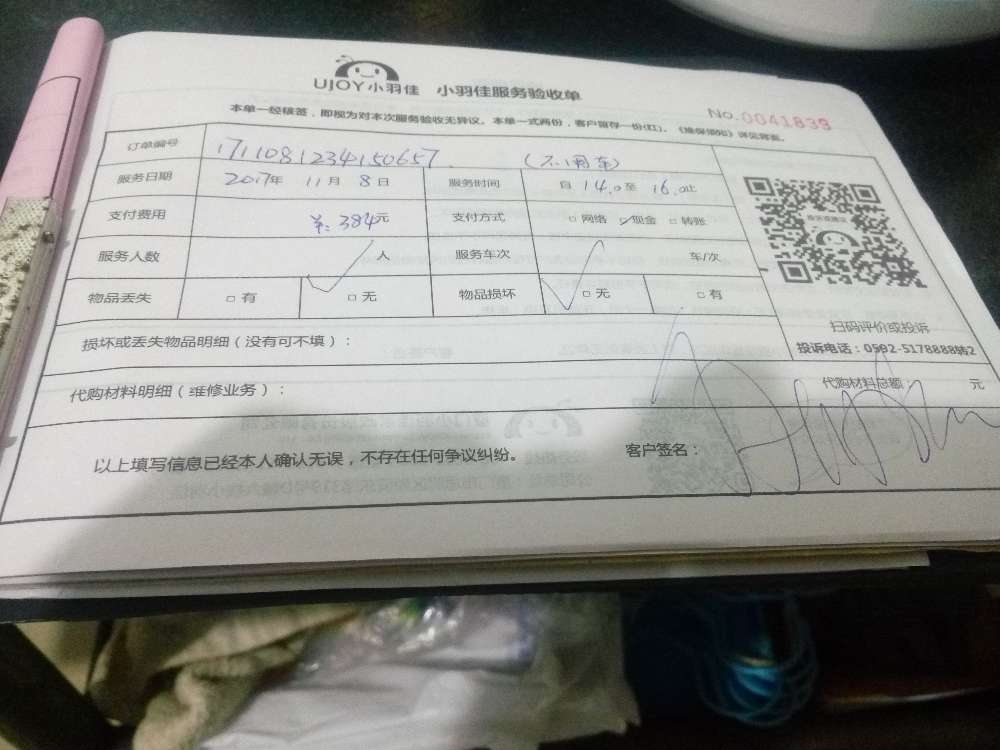 UJOY小羽佳 小羽佳服务验收单
No.0041839
本单一经核签，即视为对本次服务验收无异议。本单一式两份，客户留存一份(红)。《维保须知》详见背面。
订单编号 1711081234150657. (不用车)
服务日期 2017年 11月 8日 服务时间 自 14.0至 16.0止
支付费用 ¥:384元 支付方式 □网络 ☑现金 □转账
服务人数 人 服务车次 车/次
物品丢失 □有 □无 物品损坏 □无 □有
扫码评价或投诉
投诉电话：0592-5178888转2
损坏或丢失物品明细（没有可不填）：
代购材料明细（维修业务）： 代购材料总额： 元
以上填写信息已经本人确认无误，不存在任何争议纠纷。 客户签名：